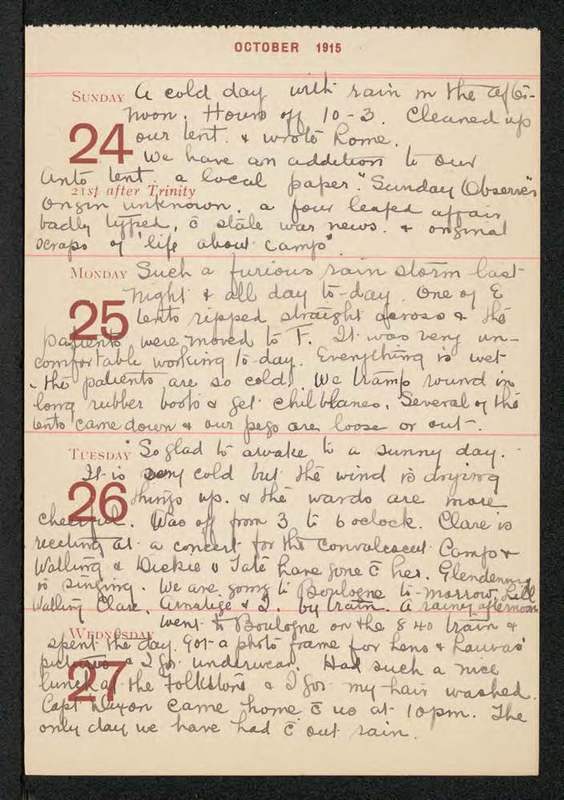 OCTOBER 1915
SUNDAY A cold day with rain in the after-
noon. Hours off 10-3. Cleaned up
24 our tent. & wrote home.
We have an addition to our
tent. a local paper. "Sunday Observer"
21st after Trinity
Origin unknown. a four leafed affair
badly typed, c̄ stale war news. & original
scraps of "life about camps".
MONDAY Such a furious rain storm last
night & all day to-day. One of E
25 tents ripped straight across & the
patients were moved to F. It was very un-
comfortable working to-day. Everything is wet
& the patients are so cold. We tramp round in
long rubber boots & get chilblanes. Several of the
tents came down & our pegs are loose or out.
TUESDAY So glad to awake to a sunny day.
It is very cold but the wind is drying
26 things up. & the wards are more
cheerful. Was off from 3 to 6 oclock. Clare is
reciting at a concert for the Convalescent Camp &
Watling & Dickie & Tate have gone c̄ her. Glendenning
is singing. We are going to Boulogne to-morrow, Hill
Watling Clare, & I. by train. A rainy afternoon
WEDNESDAY went to Boulogne on the 8 40 train &
spent the day. Got a photo frame for Lens & Lauras'
27 pictures & I got underwear. Had such a nice
lunch at the Folkstone & I got my hair washed.
Capt Dixon came home c̄ us at 10 pm. The
only day we have had c̄ out rain.